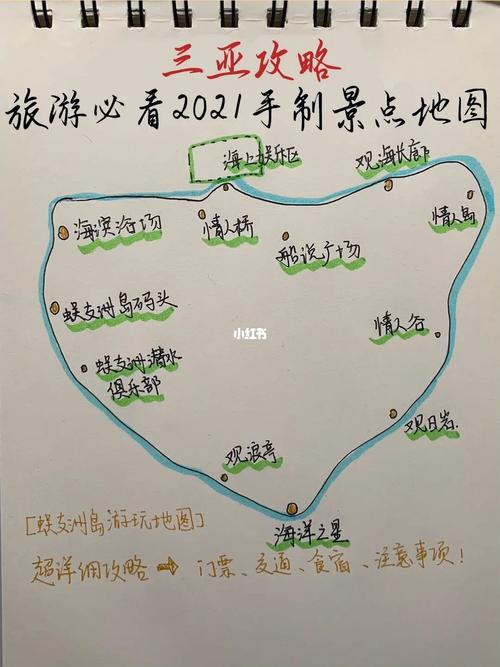 三亚攻略
旅游必看2021手制景点地图
海上娱乐区
观海长廊
海滨浴场
情人桥
情人岛
船说广场
蜈支洲岛码头
小红书
情人谷
蜈支洲潜水
俱乐部
观日岩
观浪亭
海洋之星
[蜈支洲岛游玩地图]
超详细攻略 ➡ 门票、交通、食宿、注意事项!